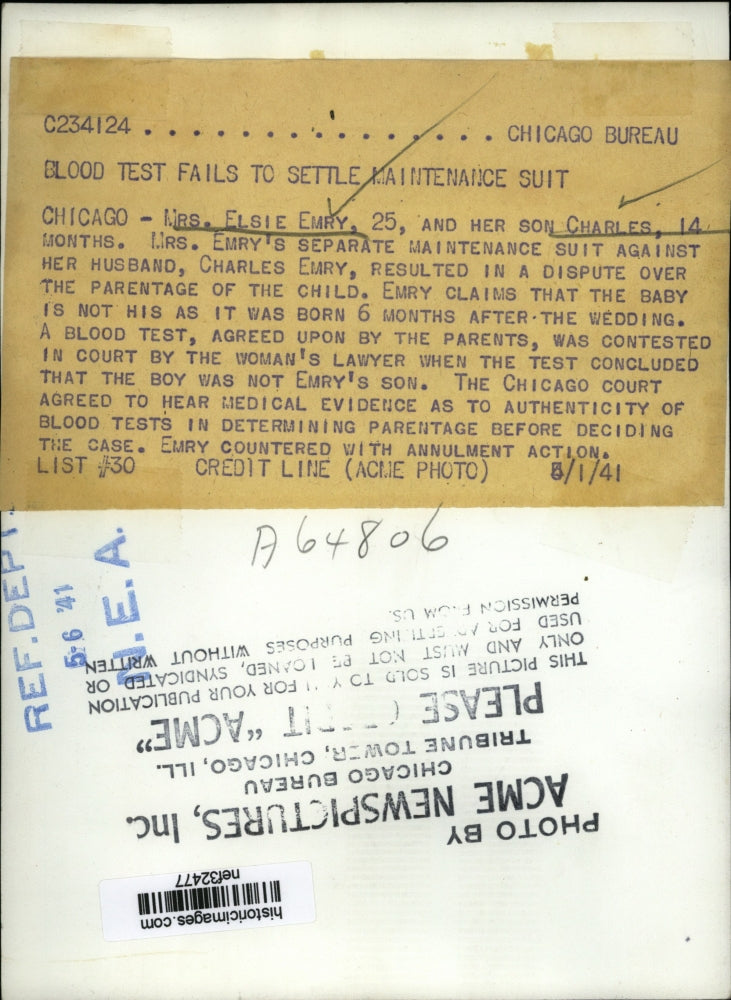 C234124 . . . . . . . . . . . . . . . . CHICAGO BUREAU
BLOOD TEST FAILS TO SETTLE MAINTENANCE SUIT
CHICAGO - MRS. ELSIE EMRY, 25, AND HER SON CHARLES, 14
MONTHS. MRS. EMRY'S SEPARATE MAINTENANCE SUIT AGAINST
HER HUSBAND, CHARLES EMRY, RESULTED IN A DISPUTE OVER
THE PARENTAGE OF THE CHILD. EMRY CLAIMS THAT THE BABY
IS NOT HIS AS IT WAS BORN 6 MONTHS AFTER THE WEDDING.
A BLOOD TEST, AGREED UPON BY THE PARENTS, WAS CONTESTED
IN COURT BY THE WOMAN'S LAWYER WHEN THE TEST CONCLUDED
THAT THE BOY WAS NOT EMRY'S SON. THE CHICAGO COURT
AGREED TO HEAR MEDICAL EVIDENCE AS TO AUTHENTICITY OF
BLOOD TESTS IN DETERMINING PARENTAGE BEFORE DECIDING
THE CASE. EMRY COUNTERED WITH ANNULMENT ACTION.
LIST #30 CREDIT LINE (ACME PHOTO) 5/1/41
A64806
REF. DEPT.
5-6 '41
N.E.A.
PHOTO BY
ACME NEWSPICTURES, Inc.
CHICAGO BUREAU
TRIBUNE TOWER, CHICAGO, ILL.
PLEASE CREDIT "ACME"
THIS PICTURE IS SOLD TO YOU FOR YOUR PUBLICATION
ONLY AND MUST NOT BE LOANED, SYNDICATED OR
USED FOR ADVERTISING PURPOSES WITHOUT WRITTEN
PERMISSION FROM US.
historicimages.com
nef32477